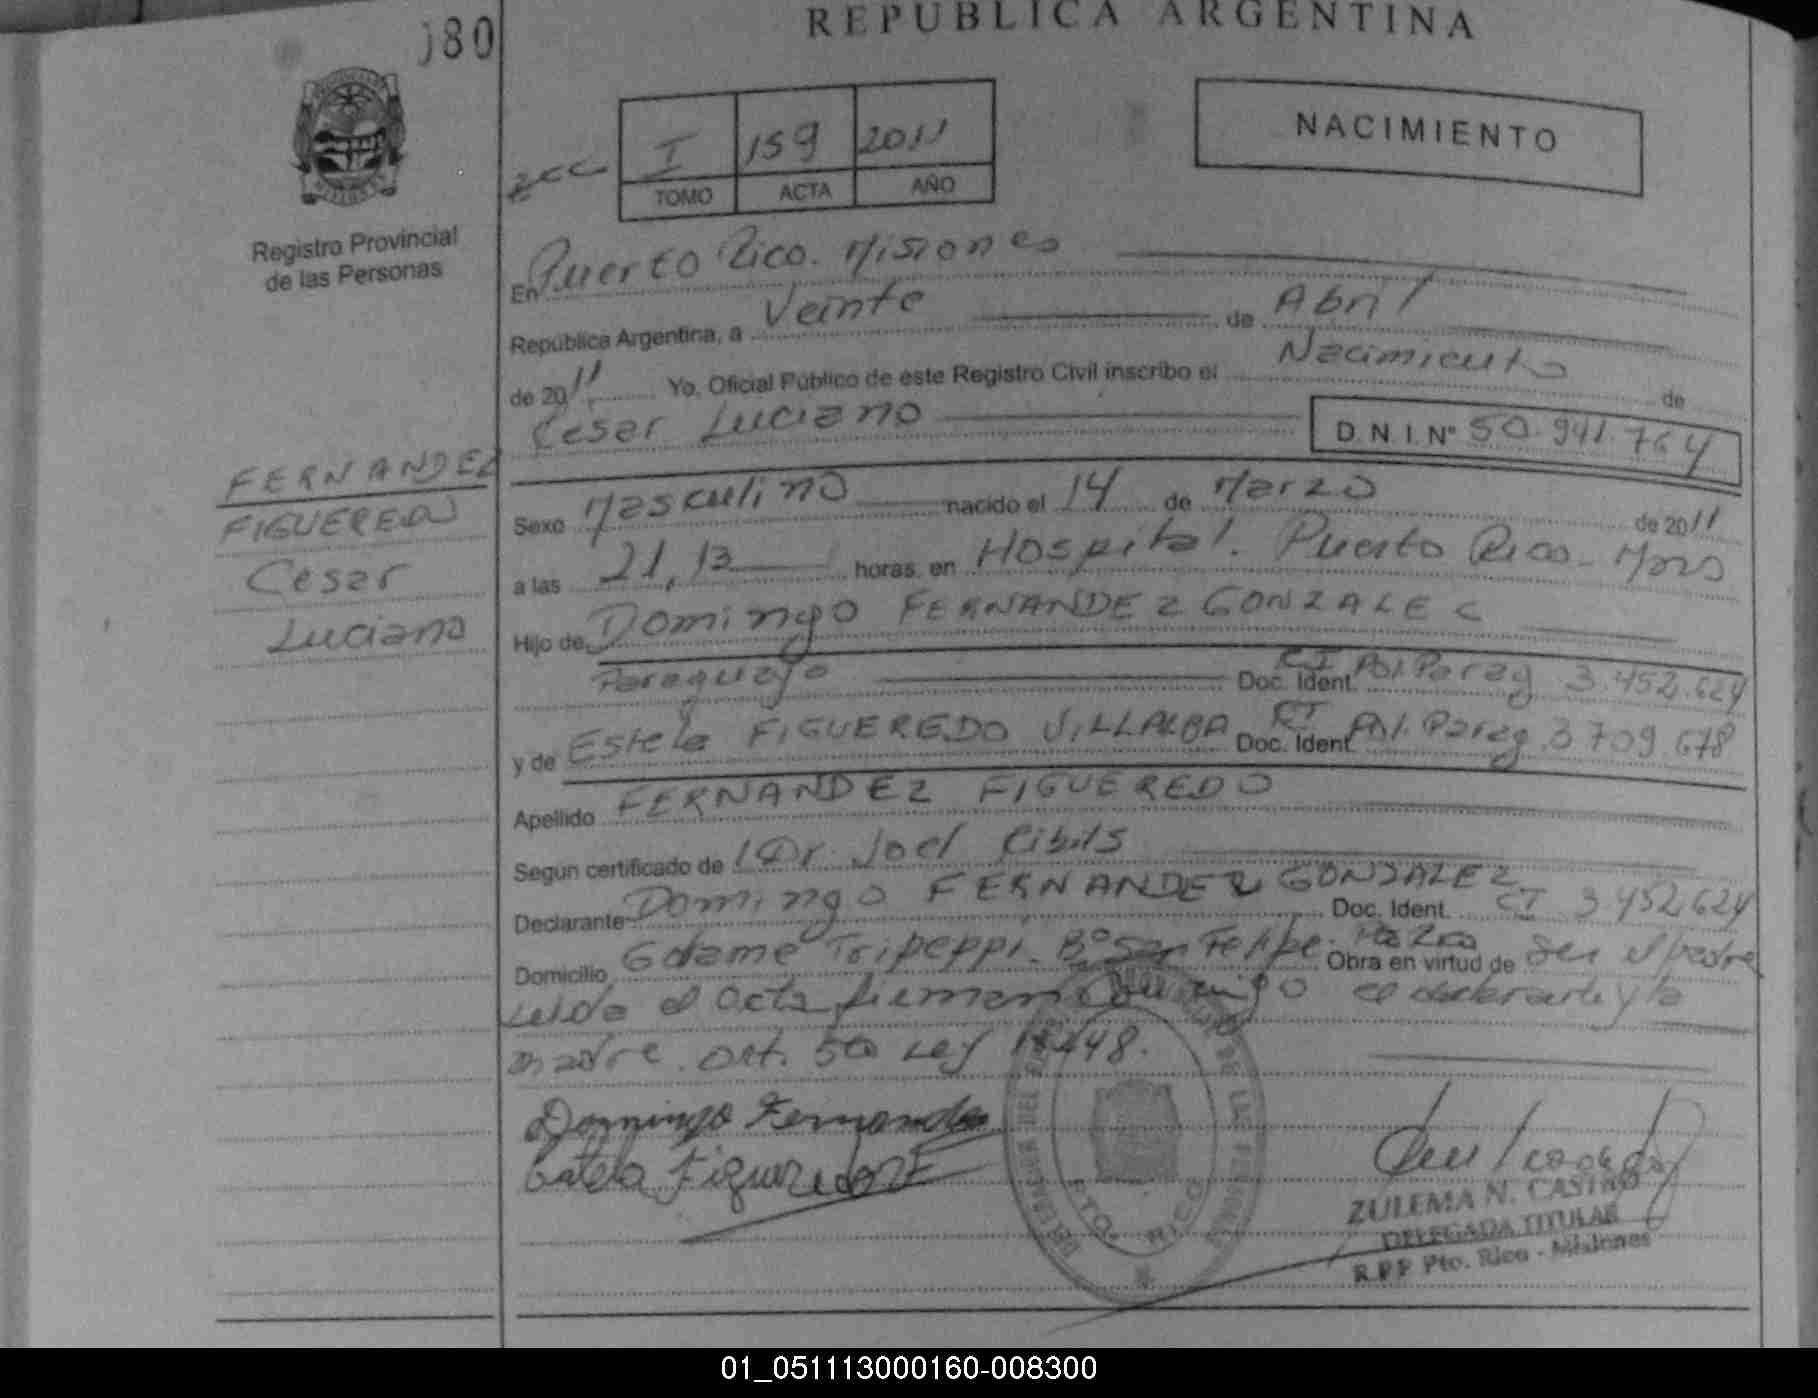 080
REPUBLICA ARGENTINA
I 159 2011
TOMO ACTA AÑO
NACIMIENTO
Registro Provincial
de las Personas
En Puerto Rico. Misiones
República Argentina, a Veinte de Abril
de 2011 Yo, Oficial Público de este Registro Civil inscribo el Nacimiento de
Cesar Luciano D.N.I.Nº 50.941.764
FERNANDEZ
FIGUEREDO
Cesar
Luciano
Sexo Masculino nacido el 14 de Marzo de 2011
a las 21,13 horas, en Hospital. Puerto Rico. Mnes
Hijo de Domingo FERNANDEZ GONZALEZ
Paraguayo Doc. Ident. CI Pol. Parag 3.452.624
y de Estela FIGUEREDO VILLALBA Doc. Ident. CI Pol. Parag. 3709.678
Apellido FERNANDEZ FIGUEREDO
Según certificado de Dr. Joel Cibils
Declarante Domingo FERNANDEZ GONZALEZ Doc. Ident. CI 3.452.624
Domicilio Gdame Tripeppi. Bº San Felipe. Pto Rico Obra en virtud de ser el padre
Leida el acta firman conmigo el declarante y la
madre. art. 5to Ley 18448.
Domingo Fernandez
Estela Figueredo
PTO. RICO
ZULEMA N. CASTRO
DELEGADA TITULAR
R.P.P Pto. Rico - Misiones
01_051113000160-008300